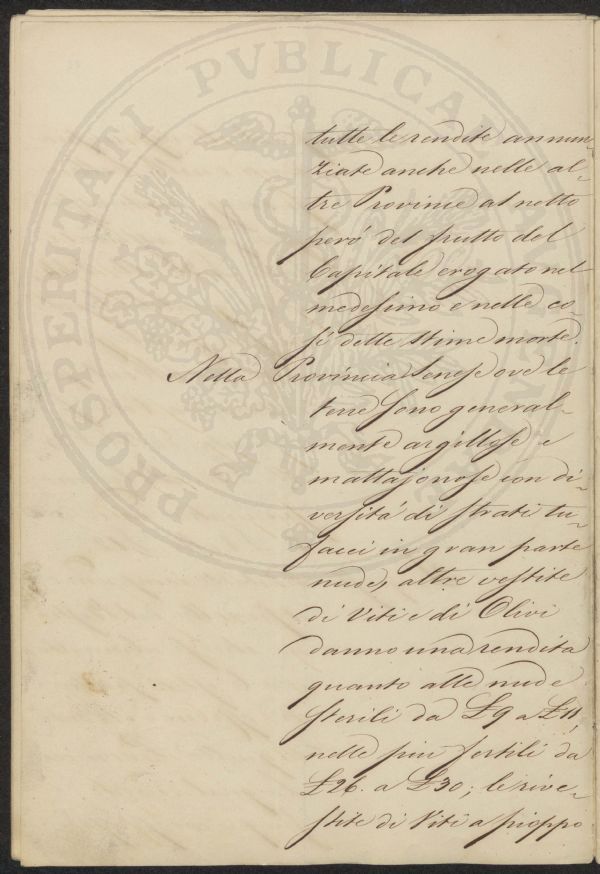 PROSPERITATI PVBLICAE AVGENDAE
tutte le rendite annun-
ziate anche nelle al-
tre Provincie al netto
peró del frutto del
Capitale erogato nel
medessimo e nelle co-
sì dette stime morte.
Nella Provincia Senese ove le
terre sono general-
mente argillose e
mattajonose con di-
versitá di strati tu-
facei in gran parte
nude, altre vestite
di Viti e di Olivi
danno una rendita
quanto alle nude
sterili da £9 a £11,
nelle piu fertili da
£26. a £30; le rive-
stite di Viti a pioppo